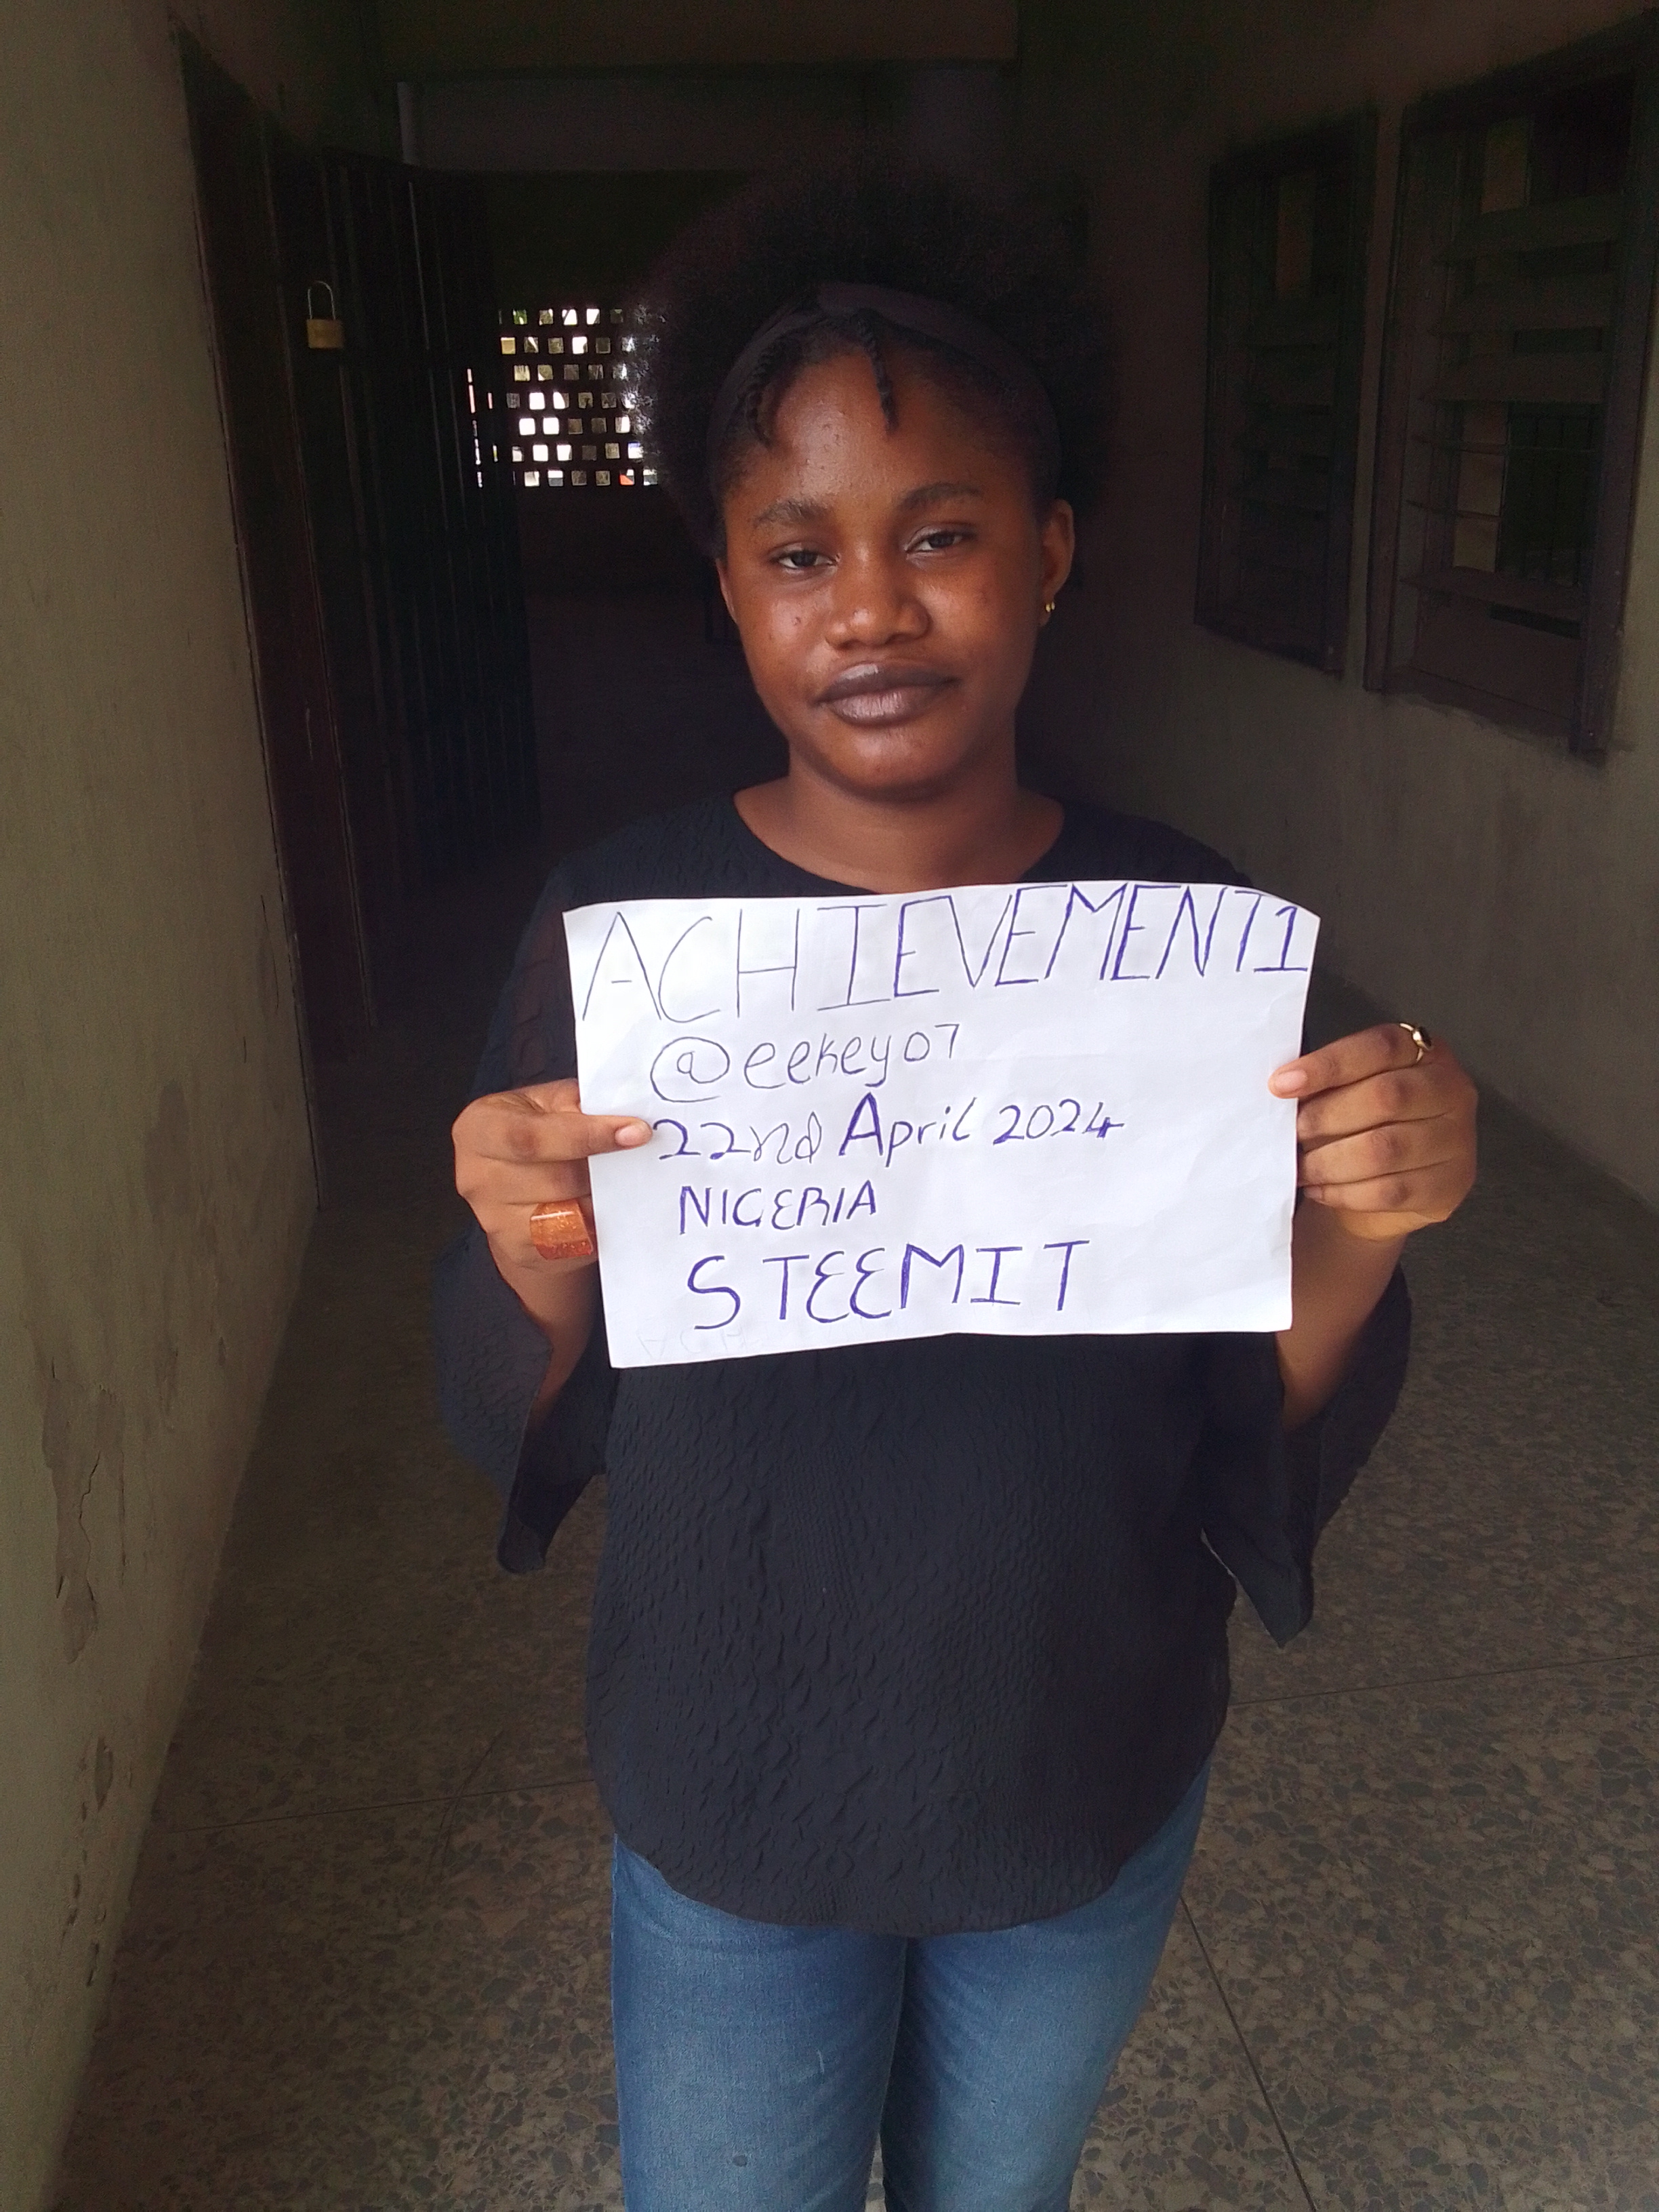 ACHIEVEMENT1
@eekey07
22nd April 2024
NIGERIA
STEEMIT